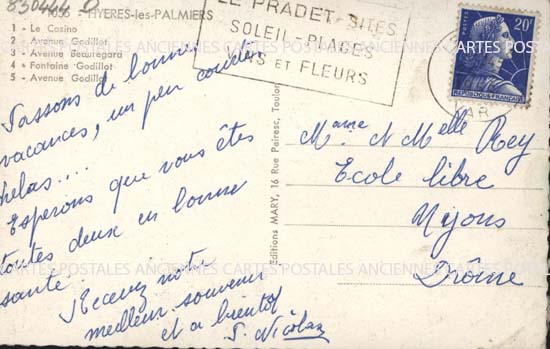 830444
1056 - HYERES-les-PALMIERS
1 - Le Casino
2 - Avenue Godillot
3 - Avenue Beauregard
4 - Fontaine Godillot
5 - Avenue Godillot
LE PRADET SITES
SOLEIL - PLAGES
ET FLEURS
20F
REPUBLIQUE FRANÇAISE
VAR
Passons de bonnes
vacances, un peu
helas....
Esperons que vous êtes
toutes deux en bonne
santé.
Recevez notre
meilleur souvenir
et a bientot
Nicolas
Editions MARY, 16 Rue Peiresc, Toulon
Mame & Melle Rey
Ecole libre
Drôme
CARTES POSTALES ANCIENNES CARTES POSTALES ANCIENNES CARTES POSTALES